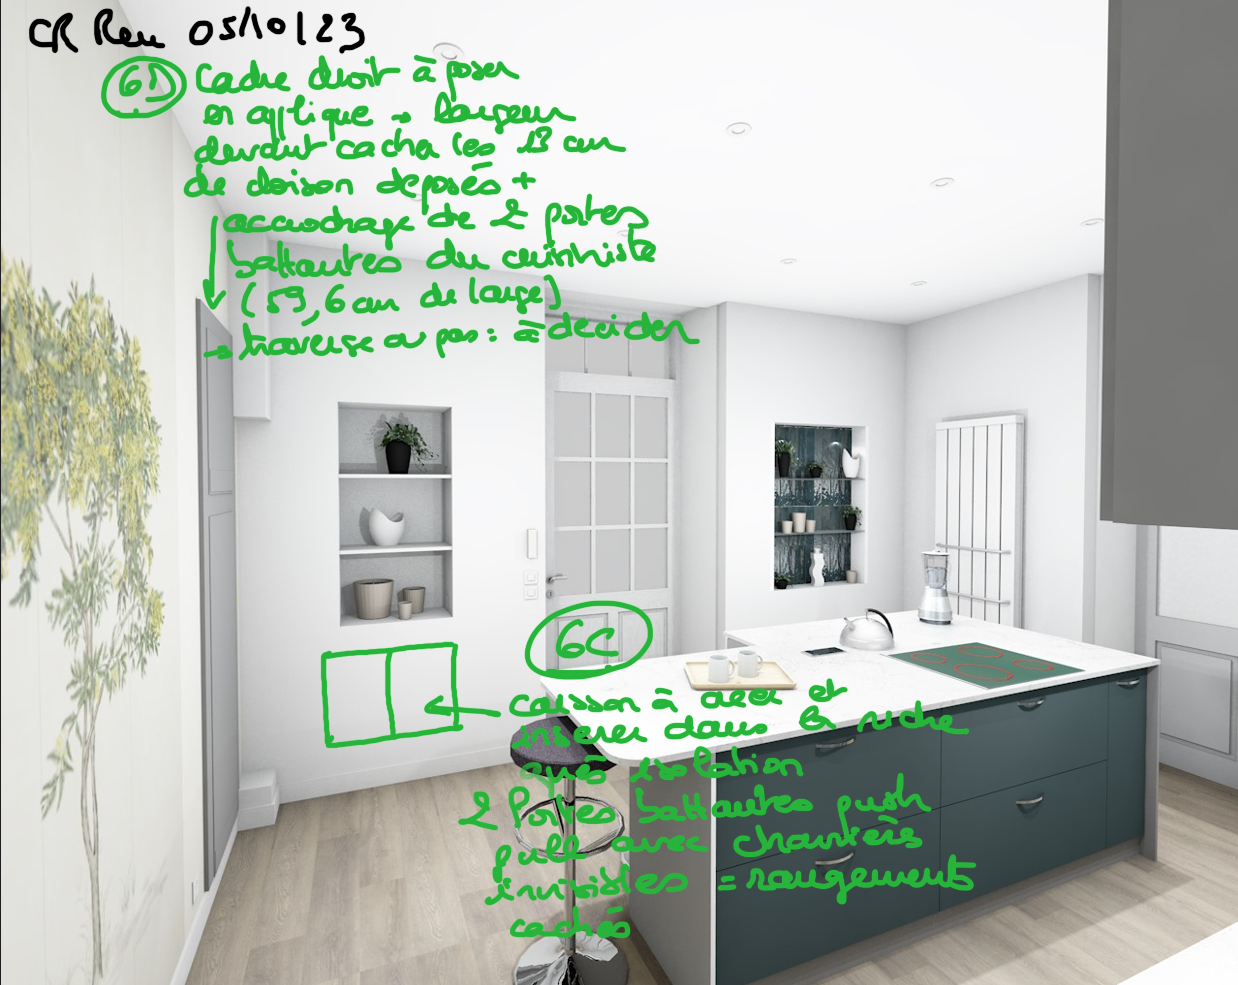 CR Reu 05/10/23
6D Cadre droit à poser
en applique → largeur
devant cacher les 13 cm
de cloison déposés +
accrochage de 2 portes
battantes du cuisiniste
(59,6 cm de large)
→ traverse ou pas : à décider
6C
caisson à créer et
insérer dans la niche
après isolation
2 Portes battantes push
pull avec charnières
invisibles = rangements
cachés